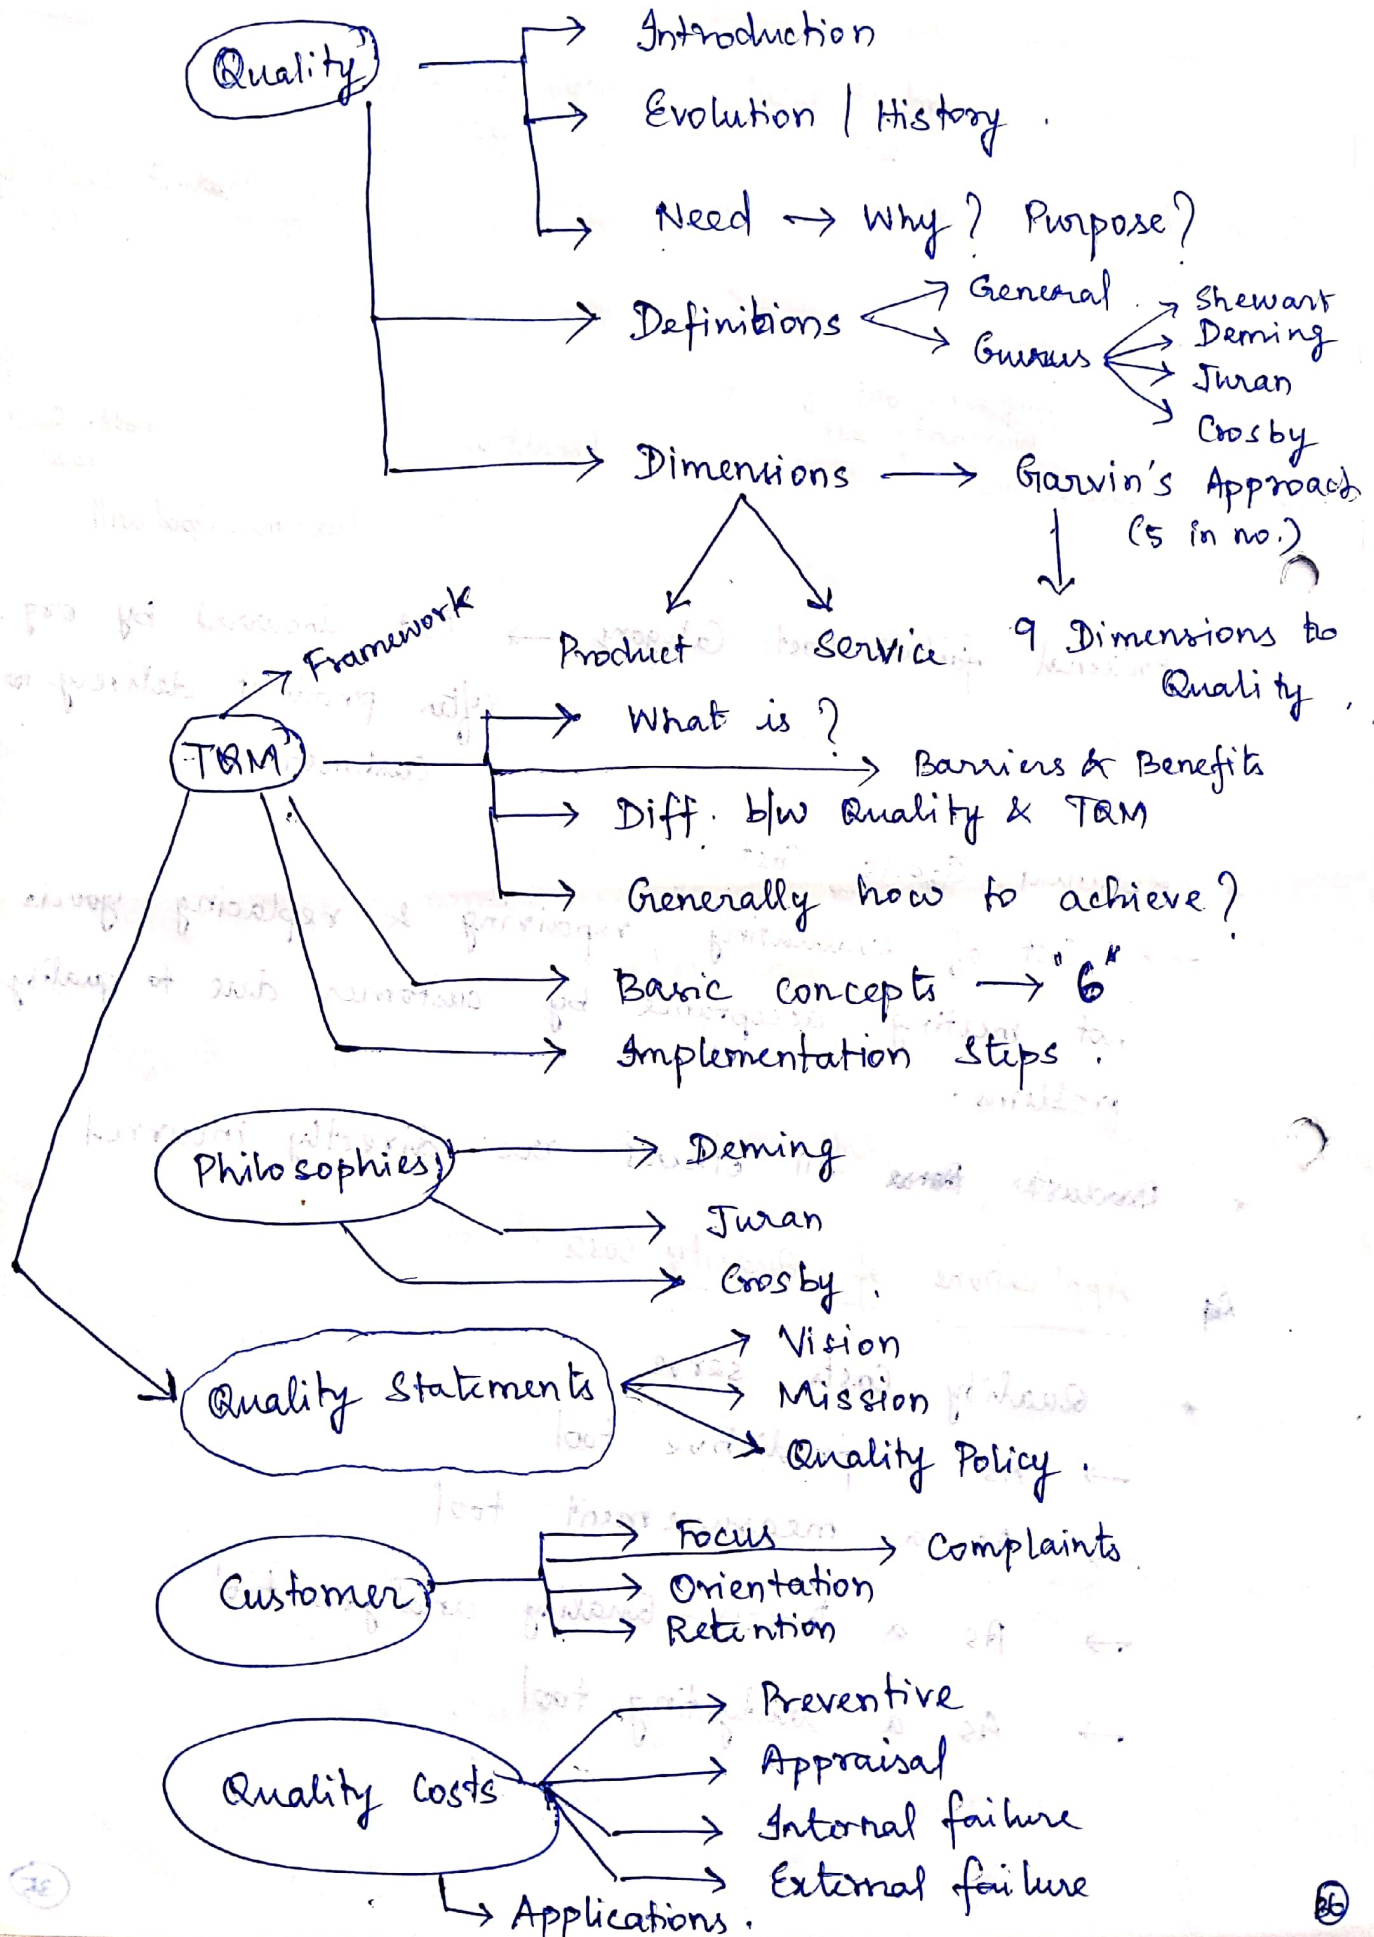 Quality
Introduction
Evolution | History.
Need → Why? Purpose?
Definitions
General
Gurus
Shewart
Deming
Juran
Crosby
Dimensions → Garvin's Approach
(5 in no.)
Product
Service.
9 Dimensions to
Quality.
Framework
TQM
What is?
Barriers & Benefits
Diff. b/w Quality & TQM
Generally how to achieve?
Basic concepts → "6"
Implementation Steps.
Philosophies
Deming
Juran
Crosby.
Quality Statements
Vision
Mission.
Quality Policy.
Customer
Focus
Complaints.
Orientation
Retention
Quality Costs
Preventive
Appraisal
Internal failure
External failure
Applications.
36